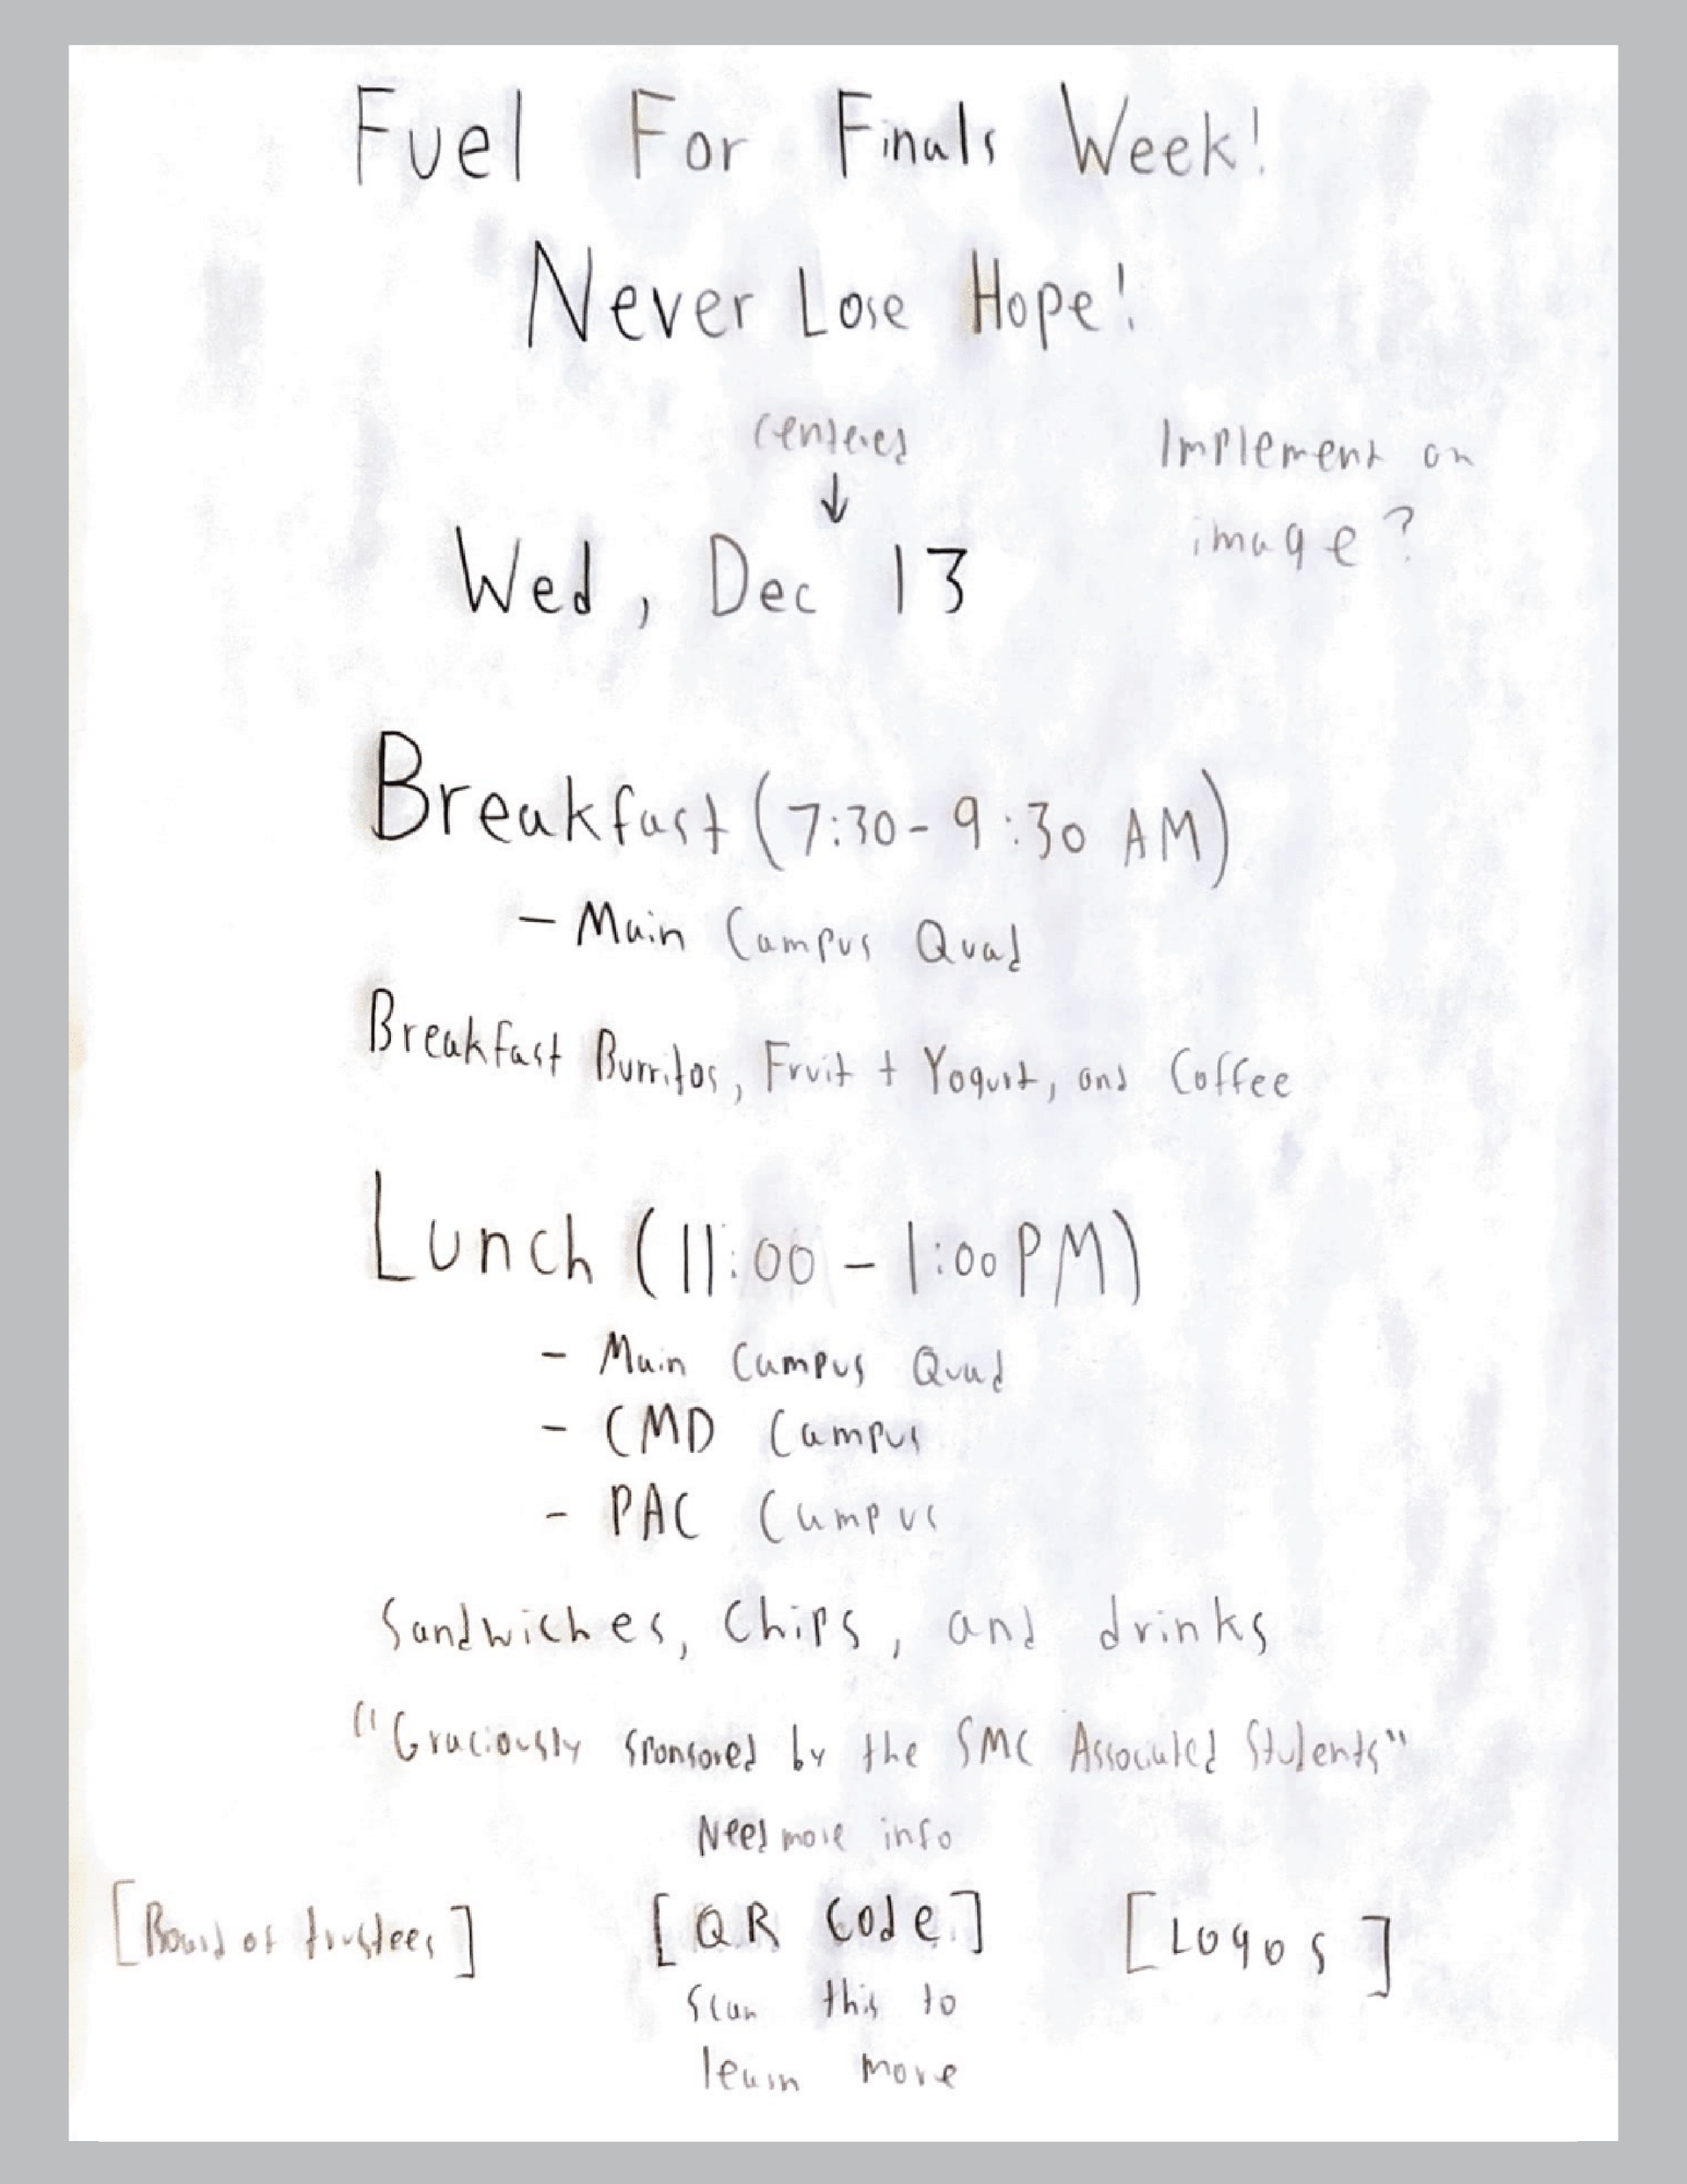 Fuel For Finals Week!
Never Lose Hope!
Centered
↓
Implement on
image?
Wed, Dec 13
Breakfast (7:30-9:30 AM)
- Main Campus Quad
Breakfast Burritos, Fruit + Yogurt, and Coffee
Lunch (11:00 - 1:00 PM)
- Main Campus Quad
- CMD Campus
- PAC Campus
Sandwiches, Chips, and drinks
"Graciously sponsored by the SMC Associated Students"
Need more info
[Board of trustees] [QR Code] [Logos]
Scan this to
learn more